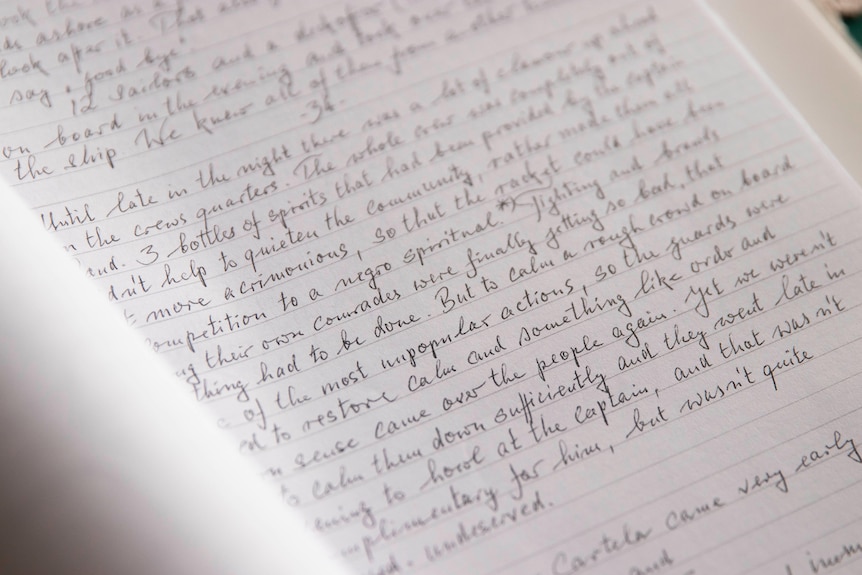 look the
as ashore as a
look after it. That also
say "good bye!
12 sailors and a
on board in the evening and took over
the ship We knew all of them from another
- 34 -
Until late in the night there was a lot of clamour up ahead
n the crews quarters. The whole crew was completely out of
and. 3 bottles of spirits that had been provided by the captain
dn't help to quieten the community, rather made them all
t more acrimonious, so that the racket could have been
ompetition to a negro spiritual.*) Fighting and brawls
ng their own comrades were finally getting so bad, that
thing had to be done. But to calm a rough crowd on board
of the most unpopular actions, so the guards were
d to restore calm and something like order and
n sense came over the people again. Yet we weren't
to calm them down sufficiently and they went late in
ening to howl at the captain, and that wasn't
mplimentary for him, but wasn't quite
undeserved.
Cartela came very early
and